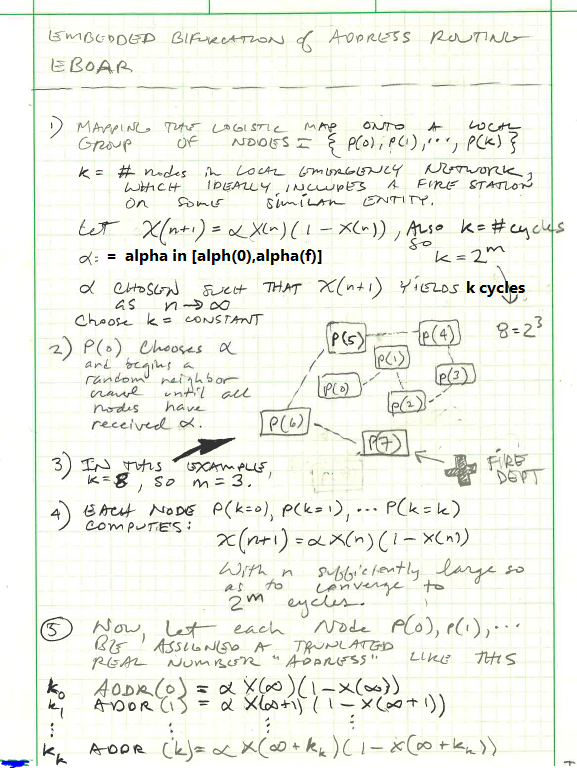 EMBEDDED BIFURCATION of ADDRESS ROUTING
EBOAR
1) MAPPING THE LOGISTIC MAP ONTO A LOCAL
GROUP OF NODES = { P(0), P(1), ..., P(k) }
k = # nodes in LOCAL EMERGENCY NETWORK,
WHICH IDEALLY INCLUDES A FIRE STATION
OR SOME SIMILAR ENTITY.
Let X(n+1) = α X(n) (1 - X(n)), Also k = # cycles
so
α: = alpha in [alph(0),alpha(f)]
k = 2^m
α CHOSEN SUCH THAT X(n+1) YIELDS k cycles
AS n → ∞
Choose k = CONSTANT
8 = 2^3
2) P(0) Chooses α
and begins a
random neighbor
crawl until all
nodes have
received α.
P(5)
P(4)
P(1)
P(0)
P(3)
P(2)
P(6)
P(7)
FIRE
DEPT
3) IN THIS EXAMPLE,
k = 8, so m = 3.
4) EACH NODE P(k=0), P(k=1), ... P(k=k)
COMPUTES:
X(n+1) = α X(n) (1 - X(n))
With n sufficiently large so
as to converge to
2^m cycles.
5) Now, Let each Node P(0), P(1), ...
BE ASSIGNED A TRUNCATED
REAL NUMBER "ADDRESS" LIKE THIS
k0 ADDR(0) = α X(∞) (1 - X(∞))
k1 ADDR(1) = α X(∞+1) (1 - X(∞+1))
⋮ ⋮ ⋮ ⋮
kk ADDR (k) = α X(∞ + kk) (1 - X(∞ + kk))